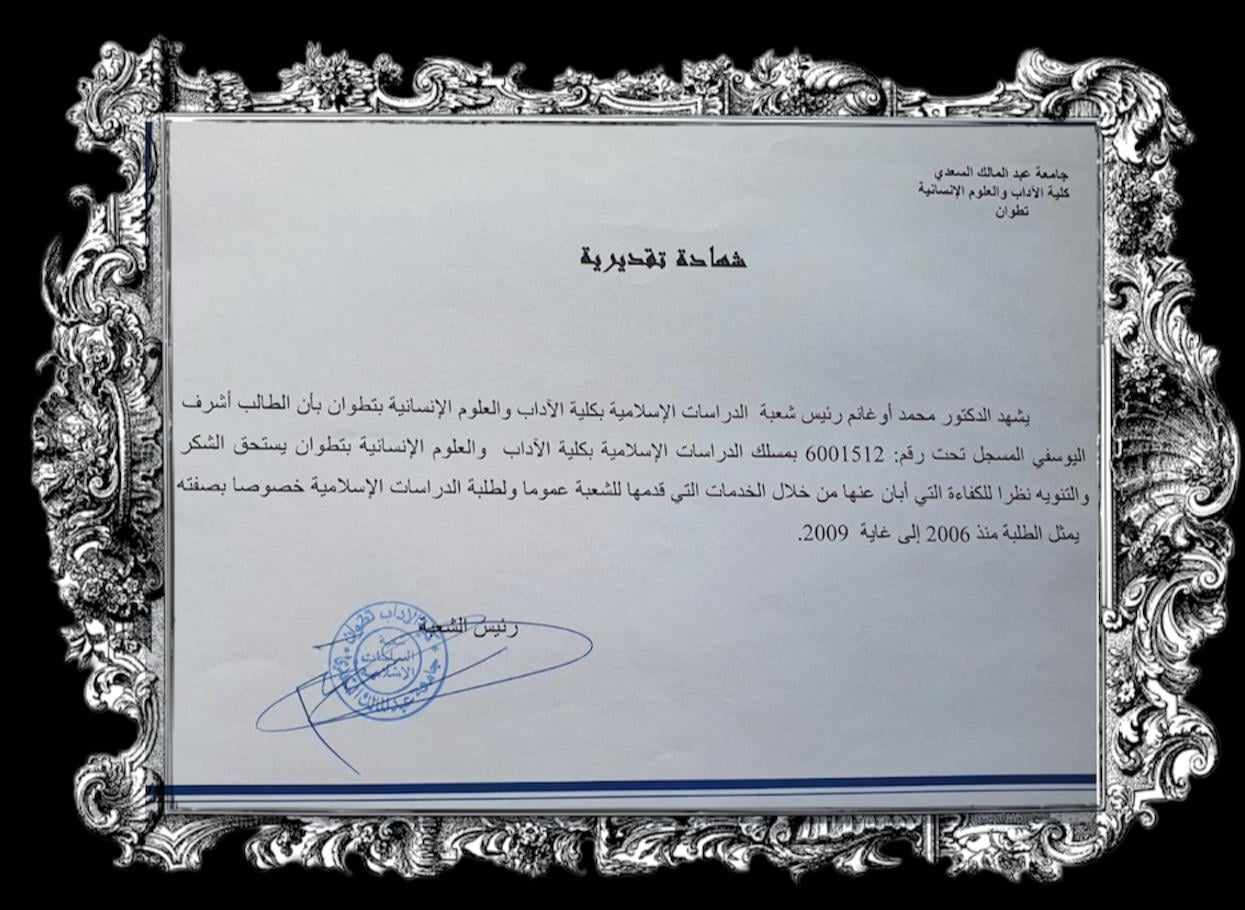 جامعة عبد المالك السعدي
كلية الآداب والعلوم الإنسانية
تطوان
شهادة تقديرية
يشهد الدكتور محمد أوغانم رئيس شعبة الدراسات الإسلامية بكلية الآداب والعلوم الإنسانية بتطوان بأن الطالب أشرف
اليوسفي المسجل تحت رقم: 6001512 بمسلك الدراسات الإسلامية بكلية الآداب والعلوم الإنسانية بتطوان يستحق الشكر
والتنويه نظرا للكفاءة التي أبان عنها من خلال الخدمات التي قدمها للشعبة عموما ولطلبة الدراسات الإسلامية خصوصا بصفته
يمثل الطلبة منذ 2006 إلى غاية 2009.
رئيس الشعبة
الآداب تطوان
الدراسات
الإسلامية
جامعة عبد المالك